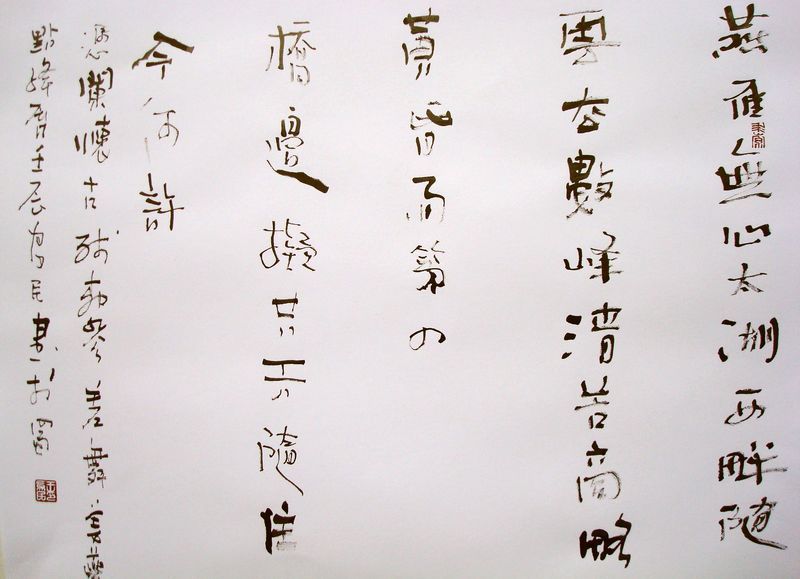 燕雁無心太湖西畔隨
雲去數峰清苦商略
黄昏雨第四
橋邊擬共天隨住
今何許
憑闌懷古殘柳參差舞
點絳唇壬辰民書於